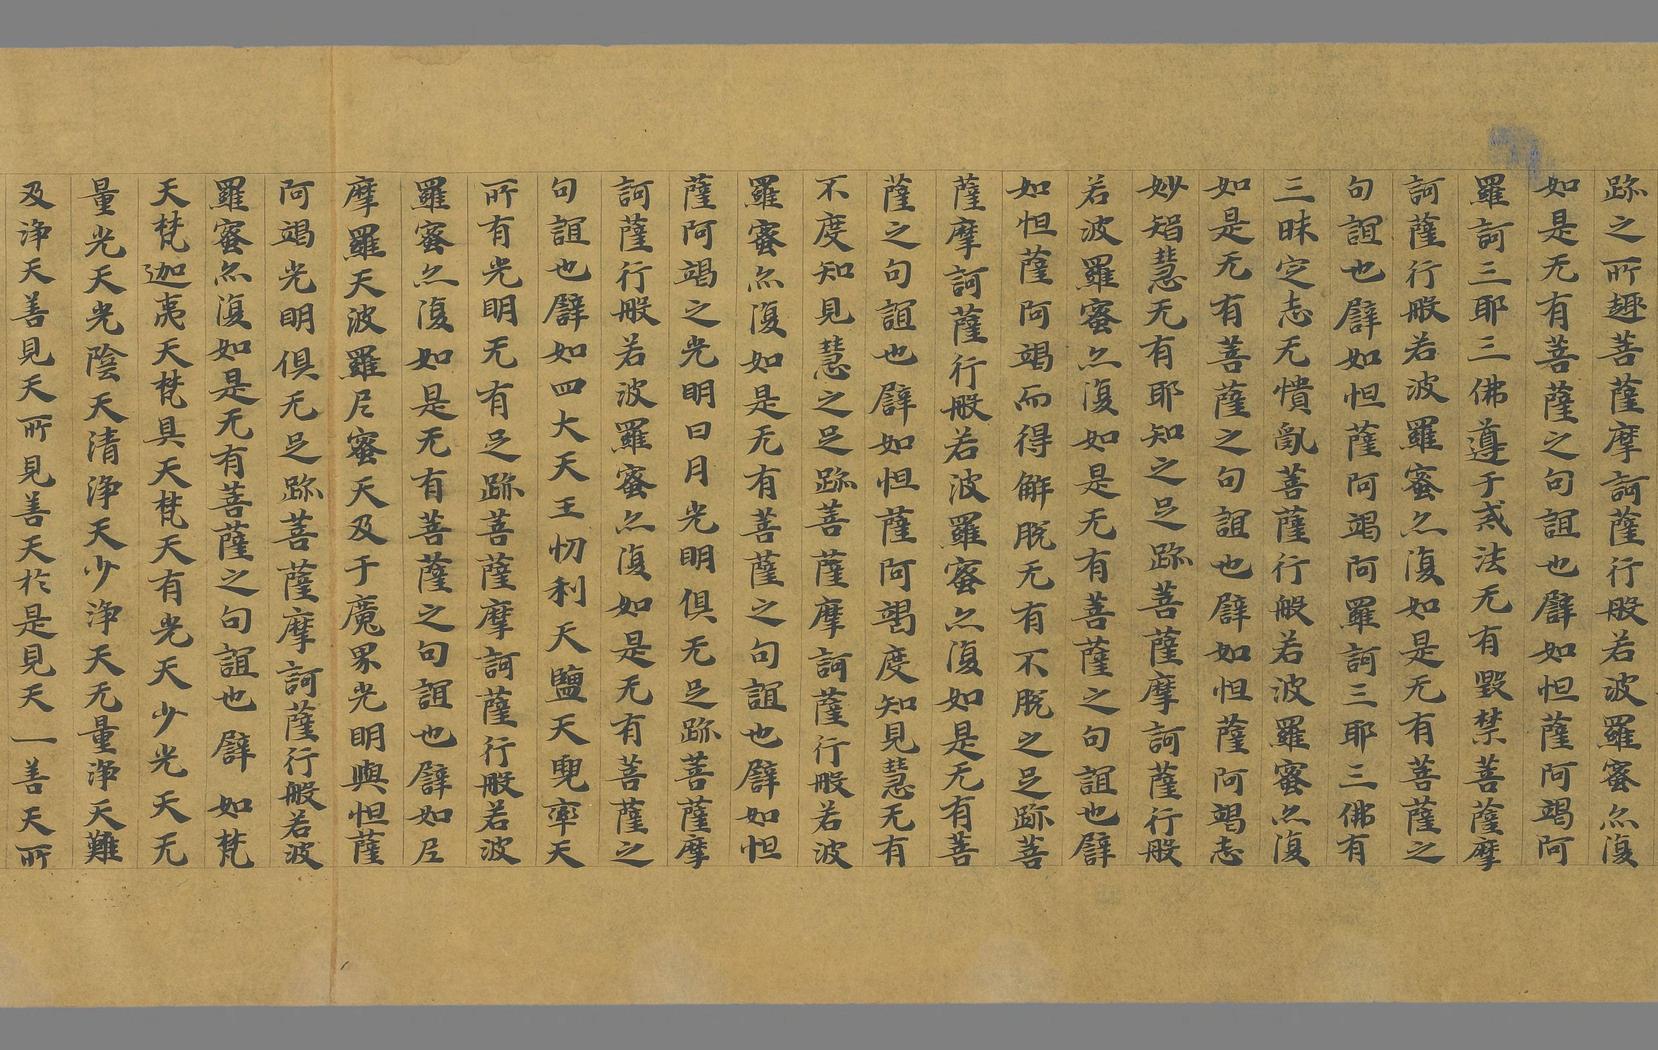 跡之所趣菩薩摩訶薩行般若波羅蜜亦復
如是无有菩薩之句誼也譬如怛薩阿竭阿
羅訶三耶三佛遵于戒法无有毀禁菩薩摩
訶薩行般若波羅蜜亦復如是无有菩薩之
句誼也譬如怛薩阿竭阿羅訶三耶三佛有
三昧定志无憒亂菩薩行般若波羅蜜亦復
如是无有菩薩之句誼也譬如怛薩阿竭志
妙智慧无有耶知之足跡菩薩摩訶薩行般
若波羅蜜亦復如是无有菩薩之句誼也譬
如怛薩阿竭而得解脫无有不脫之足跡菩
薩摩訶薩行般若波羅蜜亦復如是无有菩
薩之句誼也譬如怛薩阿竭度知見慧无有
不度知見慧之足跡菩薩摩訶薩行般若波
羅蜜亦復如是无有菩薩之句誼也譬如怛
薩阿竭之光明日月光明俱无足跡菩薩摩
訶薩行般若波羅蜜亦復如是无有菩薩之
句誼也譬如四大天王忉利天鹽天兜率天
所有光明无有足跡菩薩摩訶薩行般若波
羅蜜亦復如是无有菩薩之句誼也譬如尼
摩羅天波羅尼蜜天及于魔界光明與怛薩
阿竭光明俱无足跡菩薩摩訶薩行般若波
羅蜜亦復如是无有菩薩之句誼也譬如梵
天梵迦夷天梵具天梵天有光天少光天无
量光天光陰天清淨天少淨天无量淨天難
及淨天善見天所見善天於是見天一善天所